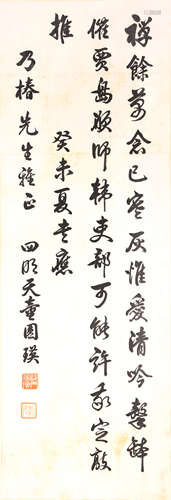 禅餘萬念已空灰惟愛清吟擊缽
催賈島願師韩吏部可能許我定敲
推
癸未夏書應
乃椿先生雅正
四明天童圓瑛